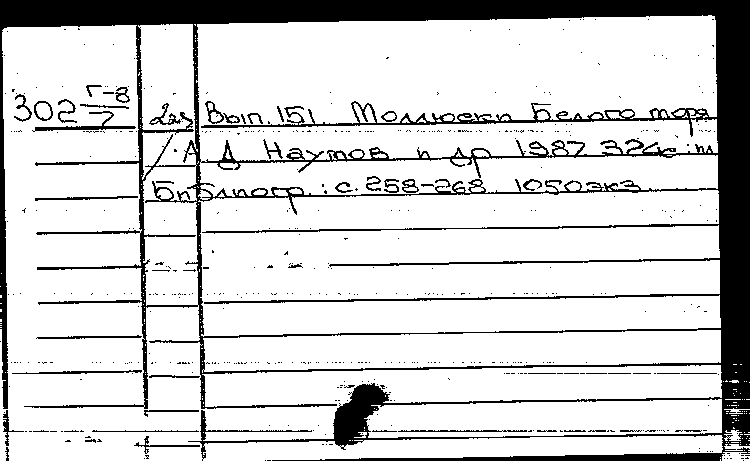 302 Г-8/7 2аз Вып. 151. Моллюски Белого моря
/ А. Д. Наумов и др 1987 324с : ил
Библиогр. : с. 258-268. 1050экз